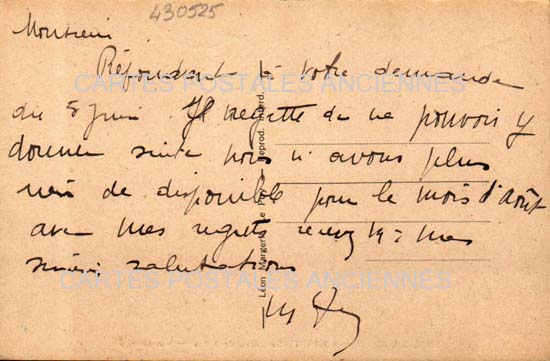 430525
Monsieur
Répondant à votre demande
du 5 juin. Je regrette de ne pouvoir y
donner suite nous n'avons plus
rien de disponible pour le mois d'août
avec mes regrets recevez Mr mes
sincères salutations
CARTES POSTALES ANCIENNES
CARTES POSTALES ANCIENNES
Léon Margerit, Le Reprod. interd.